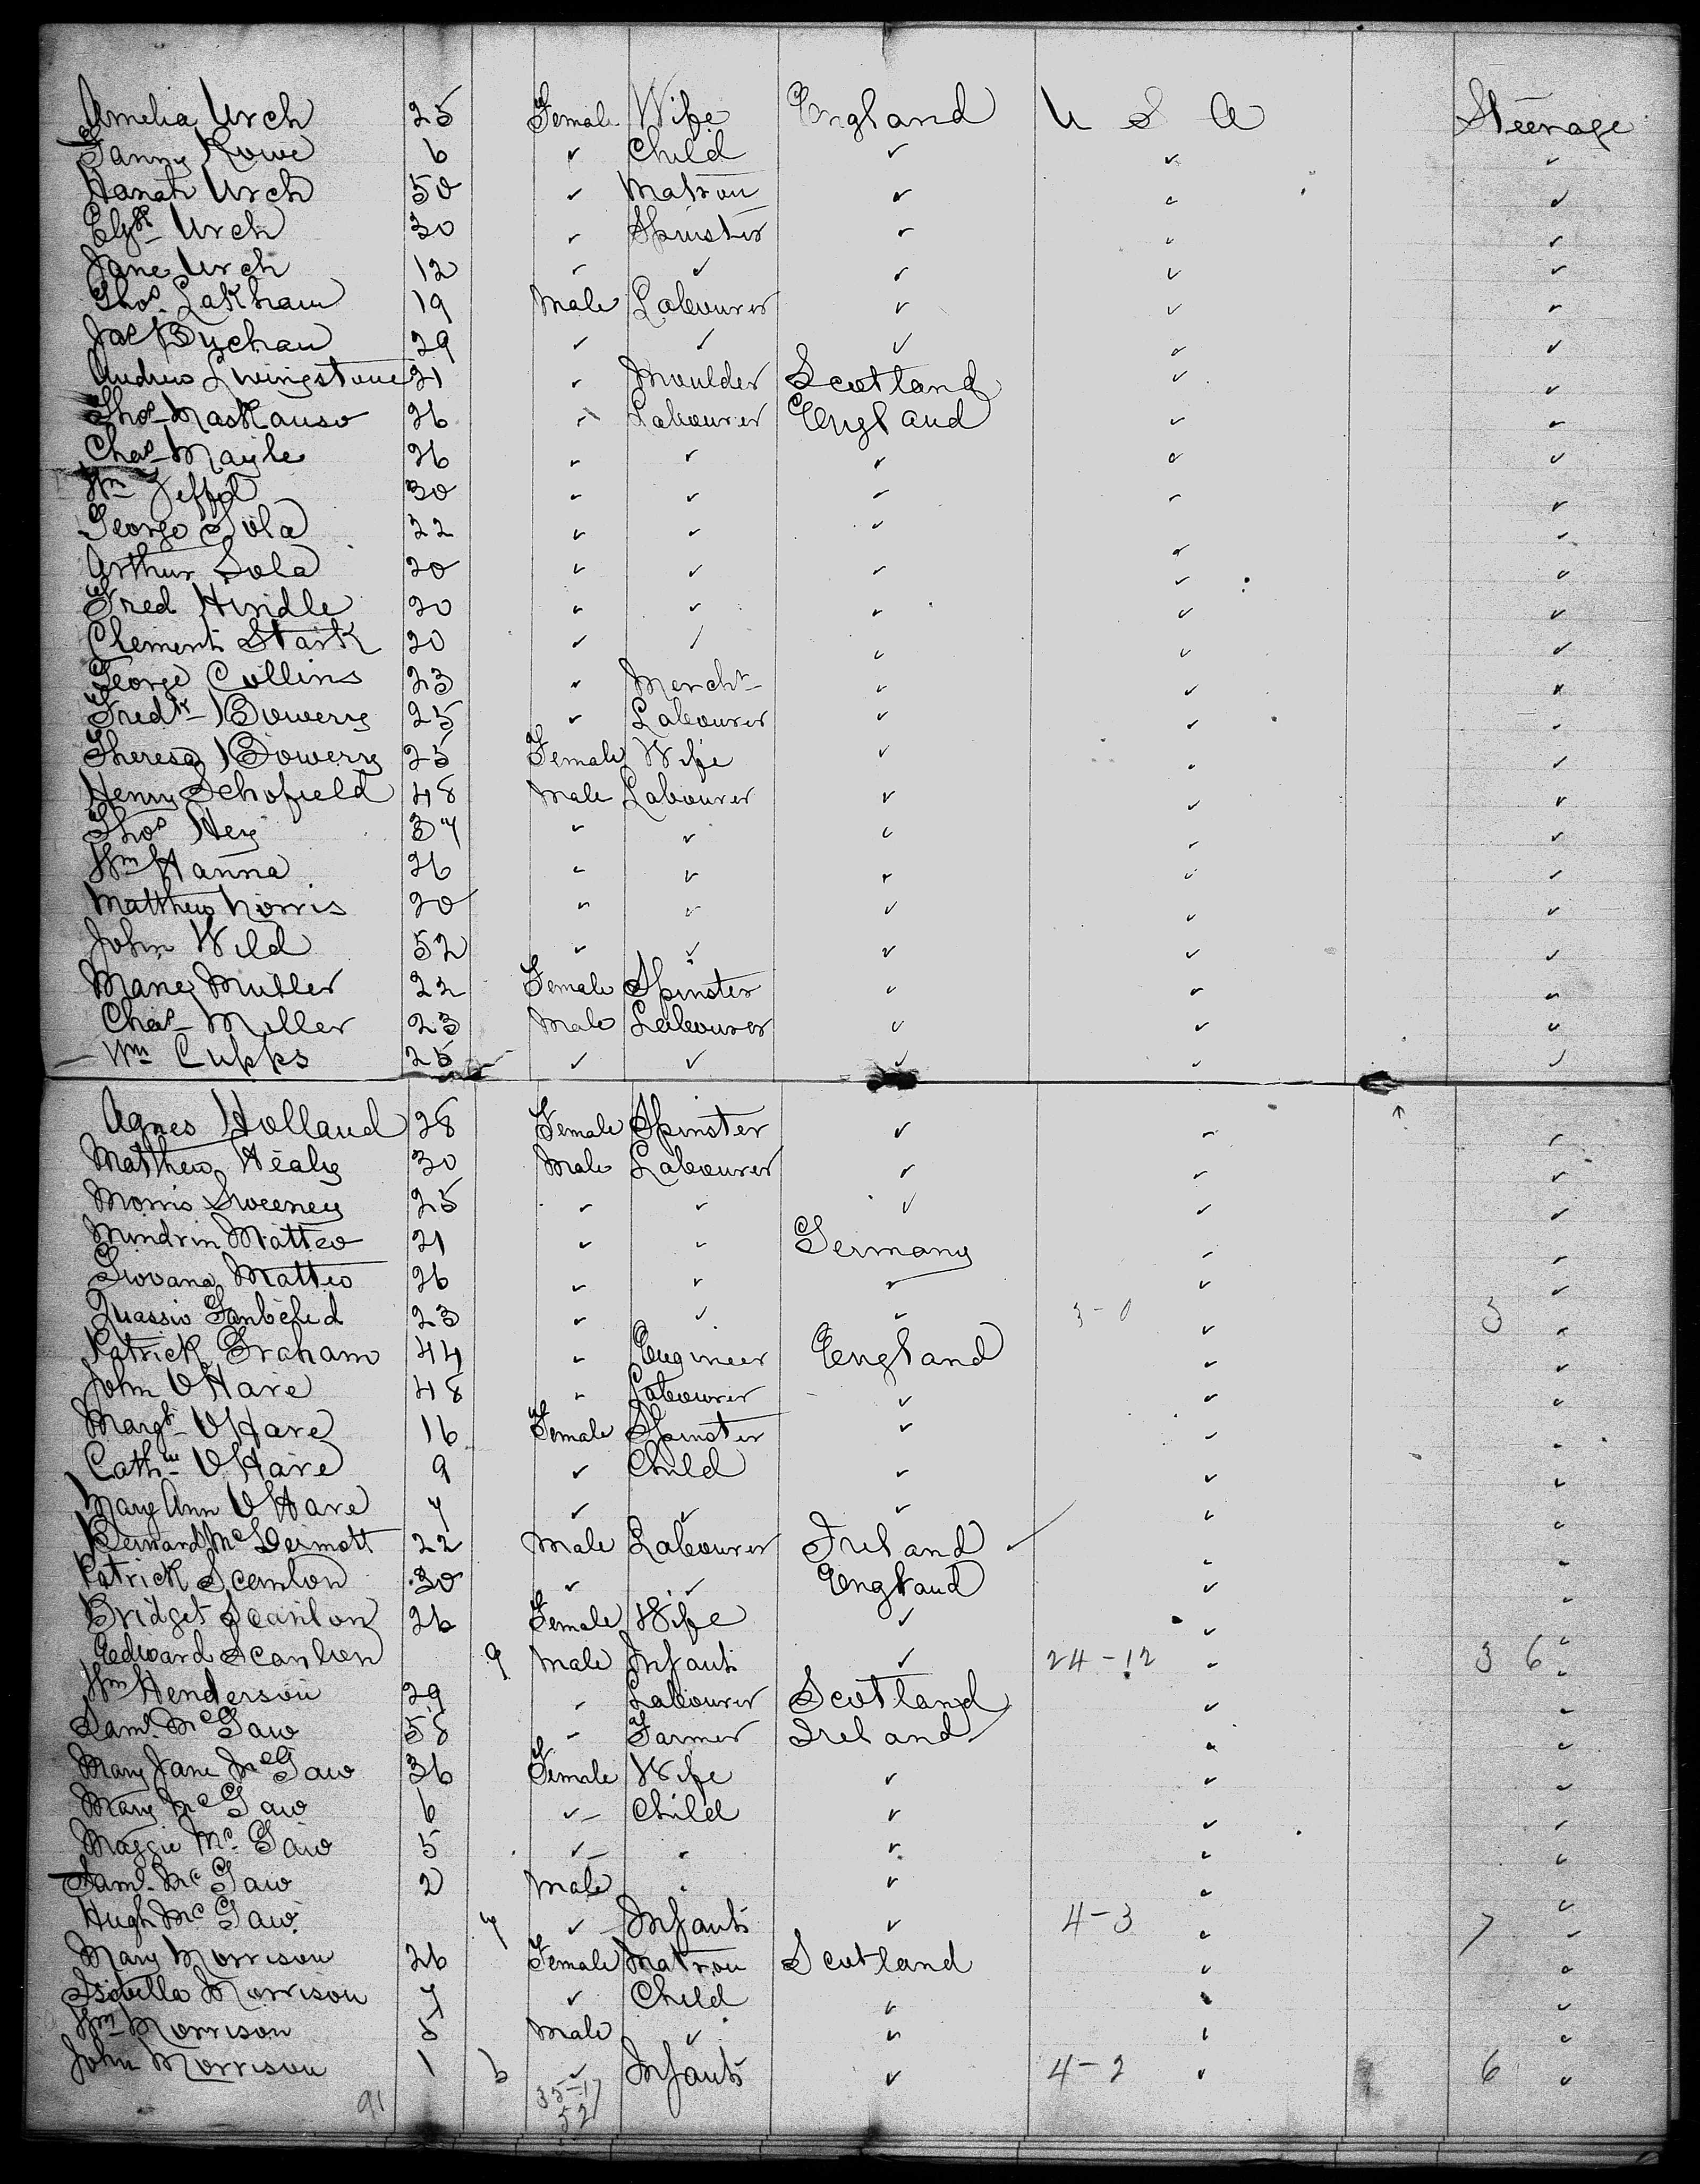 Amelia Urch 25 Female Wife England U S A Steerage
Fanny Rowe 6 ✓ Child ✓ ✓ ✓
Hanah Urch 50 ✓ Matron ✓ ✓ ✓
Elizth Urch 30 ✓ Spinster ✓ ✓ ✓
Jane Urch 12 ✓ ✓ ✓ ✓ ✓
Thos. Lakham 19 Male Labourer ✓ ✓ ✓
Jas Buchan 29 ✓ ✓ ✓ ✓ ✓
Andrew Livingstone 21 ✓ Moulder Scotland ✓ ✓
Thos 26 ✓ Labourer England ✓ ✓
Chas Mayle 26 ✓ ✓ ✓ ✓ ✓
Wm 30 ✓ ✓ ✓ ✓ ✓
George Sola 22 ✓ ✓ ✓ ✓ ✓
Arthur Sola 20 ✓ ✓ ✓ ✓ ✓
Fred Hindle 20 ✓ ✓ ✓ ✓ ✓
Clement Stark 20 ✓ ✓ ✓ ✓ ✓
George Collins 23 ✓ Mercht ✓ ✓ ✓
Fredk Bowery 25 ✓ Labourer ✓ ✓ ✓
Theresa Bowery 25 Female Wife ✓ ✓ ✓
Henry Schofield 48 Male Labourer ✓ ✓ ✓
Thos Hey 37 ✓ ✓ ✓ ✓ ✓
Wm Hanna 26 ✓ ✓ ✓ ✓ ✓
Matthew Norris 20 ✓ ✓ ✓ ✓ ✓
John Wild 52 ✓ ✓ ✓ ✓ ✓
Mary Muller 22 Female Spinster ✓ ✓ ✓
Chas Miller 23 Male Labourer ✓ ✓ ✓
Wm Cupps 25 ✓ ✓ ✓ ✓ ✓
Agnes Holland 28 Female Spinster ✓ ✓ ✓
Matthew Healy 30 Male Labourer ✓ ✓ ✓
Morris Sweeney 25 ✓ ✓ ✓ ✓ ✓
Mindrin Matteo 21 ✓ ✓ Germany ✓ ✓
Giovana Matteo 26 ✓ ✓ ✓ ✓ ✓
Quassio 23 ✓ ✓ ✓ 3-0 ✓ 3 ✓
Patrick Graham 44 ✓ Engineer England ✓ ✓
John OHare 48 ✓ Labourer ✓ ✓ ✓
Margt OHare 16 Female Spinster ✓ ✓ ✓
Cathne OHare 9 ✓ Child ✓ ✓ ✓
Mary Ann OHare 7 ✓ ✓ ✓ ✓ ✓
Bernard McDermott 22 Male Labourer Ireland ✓ ✓ ✓
Patrick Scanlon 30 ✓ ✓ England ✓ ✓
Bridget Scanlon 26 Female Wife ✓ ✓ ✓
Edward Scanlon 9 Male Infant ✓ 24-12 ✓ 36 ✓
Wm Henderson 29 ✓ Labourer Scotland ✓ ✓
Saml. McGaw 58 ✓ Farmer Ireland ✓ ✓
Mary Jane McGaw 36 Female Wife ✓ ✓ ✓
Mary McGaw 6 ✓ Child ✓ ✓ ✓
Maggie McGaw 5 ✓ ✓ ✓ ✓ ✓
Saml. McGaw 2 Male ✓ ✓ ✓ ✓
Hugh McGaw 7 ✓ Infant ✓ 4-3 ✓ 7 ✓
Mary Morrison 26 Female Matron Scotland ✓ ✓
Isabella Morrison 7 ✓ Child ✓ ✓ ✓
Wm Morrison 5 Male ✓ ✓ ✓ ✓
John Morrison 1 6 ✓ Infant ✓ 4-2 ✓ 6 ✓
91 35-17
52